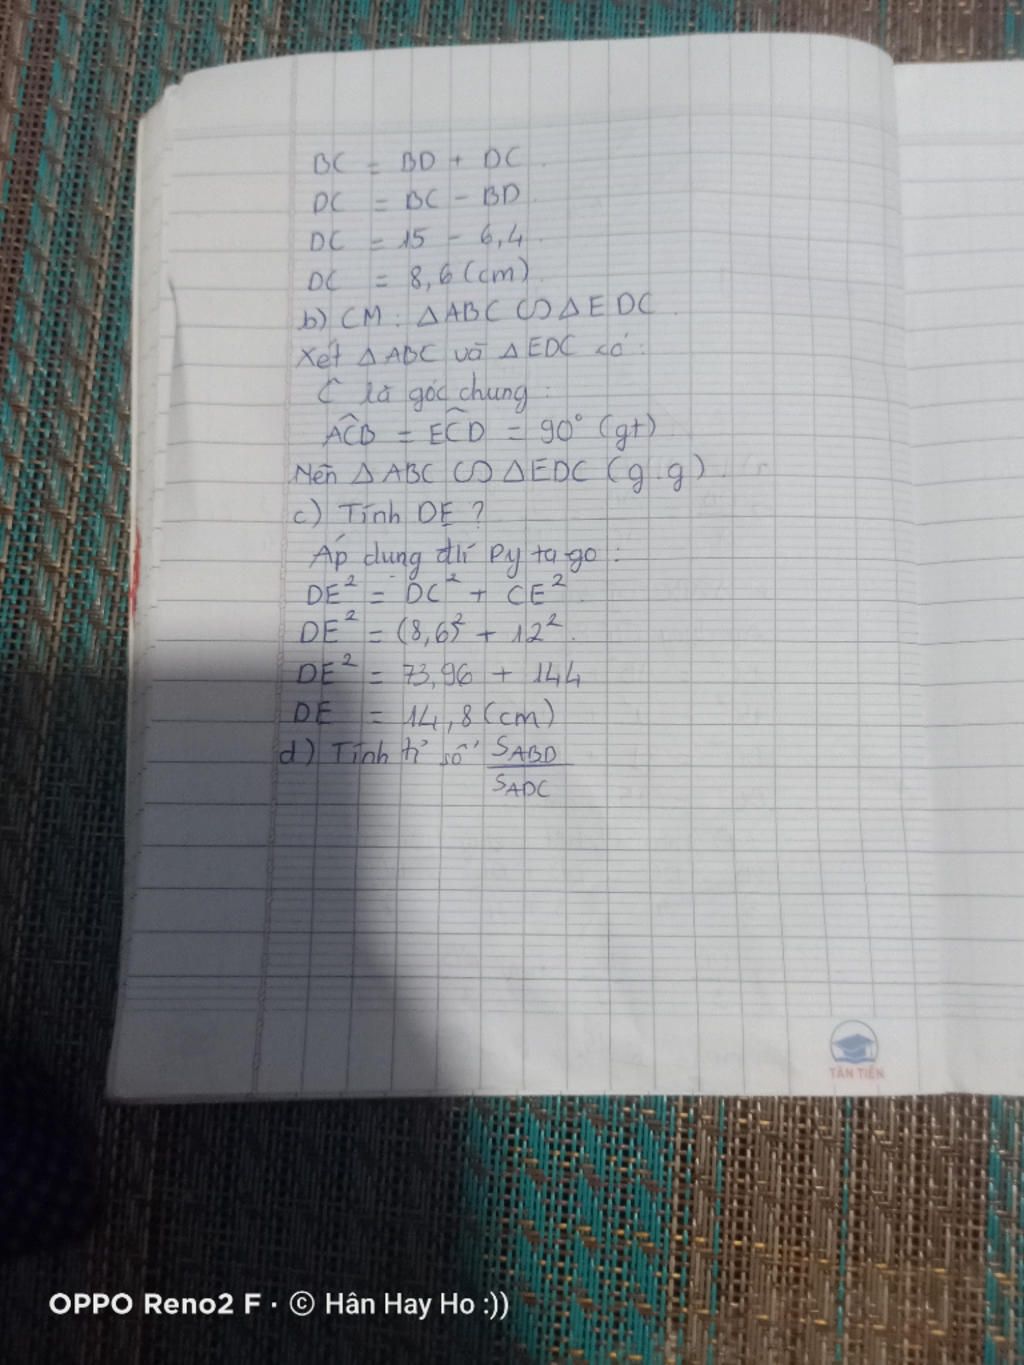 BC = BD + DC
DC = BC - BD
DC = 15 - 6,4
DC = 8,6 (cm)
b) CM : △ABC ∽ △EDC
Xét △ABC và △EDC có :
Ĉ là góc chung :
ACB = ECD = 90° (gt)
Nên △ABC ∽ △EDC (g.g)
c) Tính DE ?
Áp dụng đlí Py ta go :
DE² = DC² + CE²
DE² = (8,6)² + 12²
DE² = 73,96 + 144
DE = 14,8 (cm)
d) Tính tỉ số S_ABD
S_ADC
TÂN TIẾN
OPPO Reno2 F · © Hân Hay Ho :))